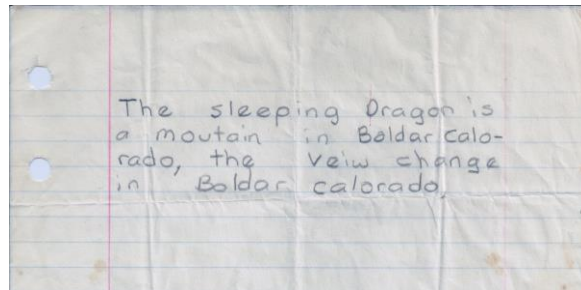 The sleeping Dragon is
a moutain in Boldar calo-
rado, the veiw change
in Boldar calorado.